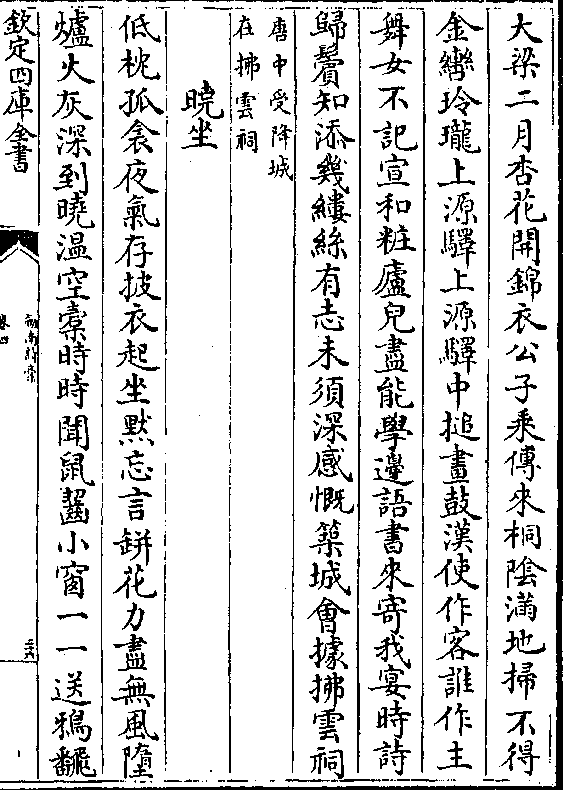 大梁二月杏花開錦衣公子乘傳來桐陰滿地掃不得
金轡玲瓏上源驛上源驛中搥畫鼓漢使作客誰作主
舞女不記宣和粧廬兒盡能學邊語書來寄我宴時詩
歸鬢知添幾縷絲有志未須深感慨築城會據拂雲祠
唐中受降城
在拂雲祠
曉坐
低枕孤衾夜氣存披衣起坐默忘言缾花力盡無風墮
爐火灰深到曉溫空橐時時聞鼠齧小窗一一送鴉翻
欽定四庫全書
劍南詩槀
卷四